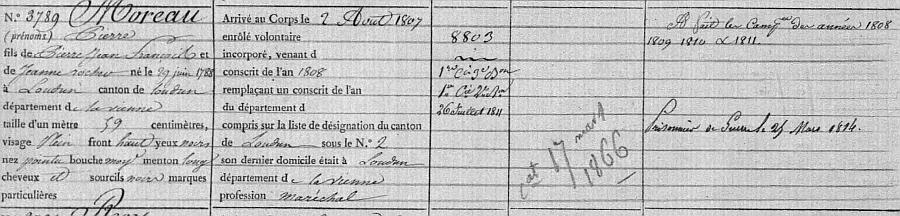 N.° 3789 Moreau
(prénoms) Pierre
fils de Pierre Jean François et
de Jeanne né le 29 juin 1788
à Loudun canton de Loudun
département de la vienne
taille d'un mètre 59 centimètres,
visage Plein front haut yeux noirs
nez pointu bouche moy menton long
cheveux et sourcils noirs marques
particulières
Arrivé au Corps le 2 Avril 1807
enrôlé volontaire
incorporé, venant d
conscrit de l'an 1808
remplaçant un conscrit de l'an
du département d
compris sur la liste de désignation du canton
de Loudun sous le N.° 2
son dernier domicile était à Loudun
département de la vienne
profession maréchal
8803
26 Juillet 1811
cat 17 mars
1866
A fait les Camp.nes des années 1808
1809 1810 & 1811
Prisonnier de Guerre le 25 Mars 1814.